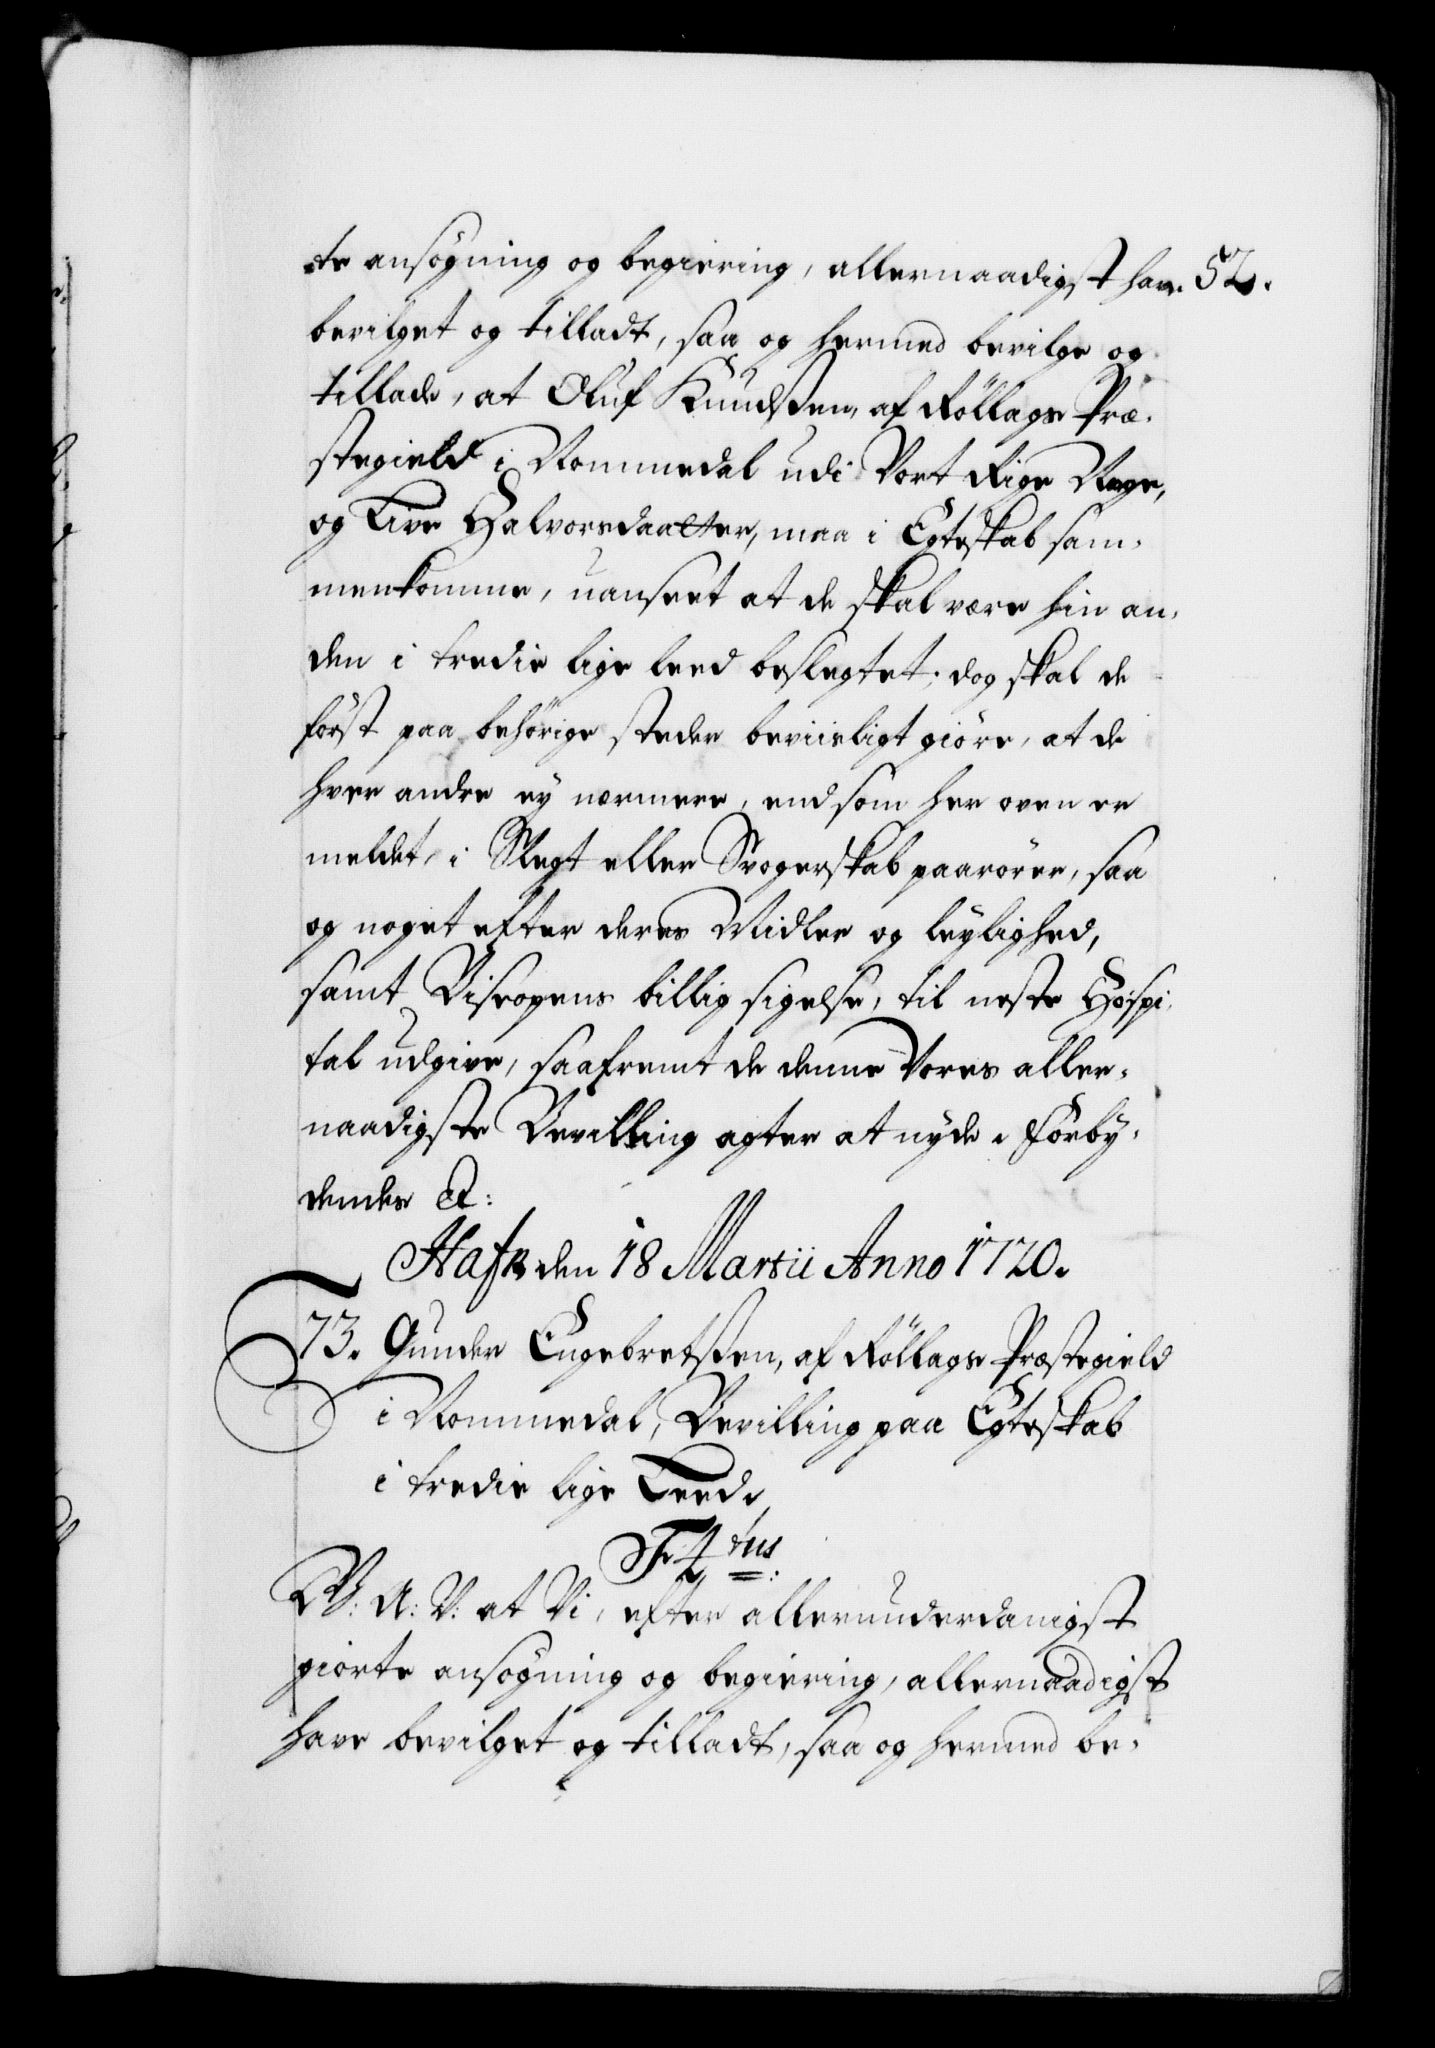 te ansøgning og begiering, allernaadigst have 52.
bevilget og tilladt, saa og hermed bevilge og
tillade, at Oluf Knudsen, af Röllags Præ-
stegield i Nommedal udi Vort Rige Norge,
og Live Halvorsdaatter, maa i Egteskab sam-
menkomme, uanseet at de skal være hin an-
den i tredie lige leed beslegtet; dog skal de
först paa behörige steder beviisligt giöre, at de
hver andre ey nærmere, end som her oven er
meldet, i Slegt eller Svogerskab paarörer, saa
og noget efter deres Midler og leylighed,
samt Biscopens billig sigelse, til neste Hospi-
tal udgive, saafremt de denne Vores aller-
naadigste Bevilling agter at nyde. Forby-
dendes &:
Hafn. den 18 Martii Anno 1720.
73. Gunder Engebretsen, af Röllags Præstegield
i Nommedal, Bevilling paa Egteskab
i tredie lige Leed.
F. 4tus:
G. A: V: at Vi, efter allerunderdanigst
giorte ansøgning og begiering, allernaadigst
have bevilget og tilladt, saa og hermed be-